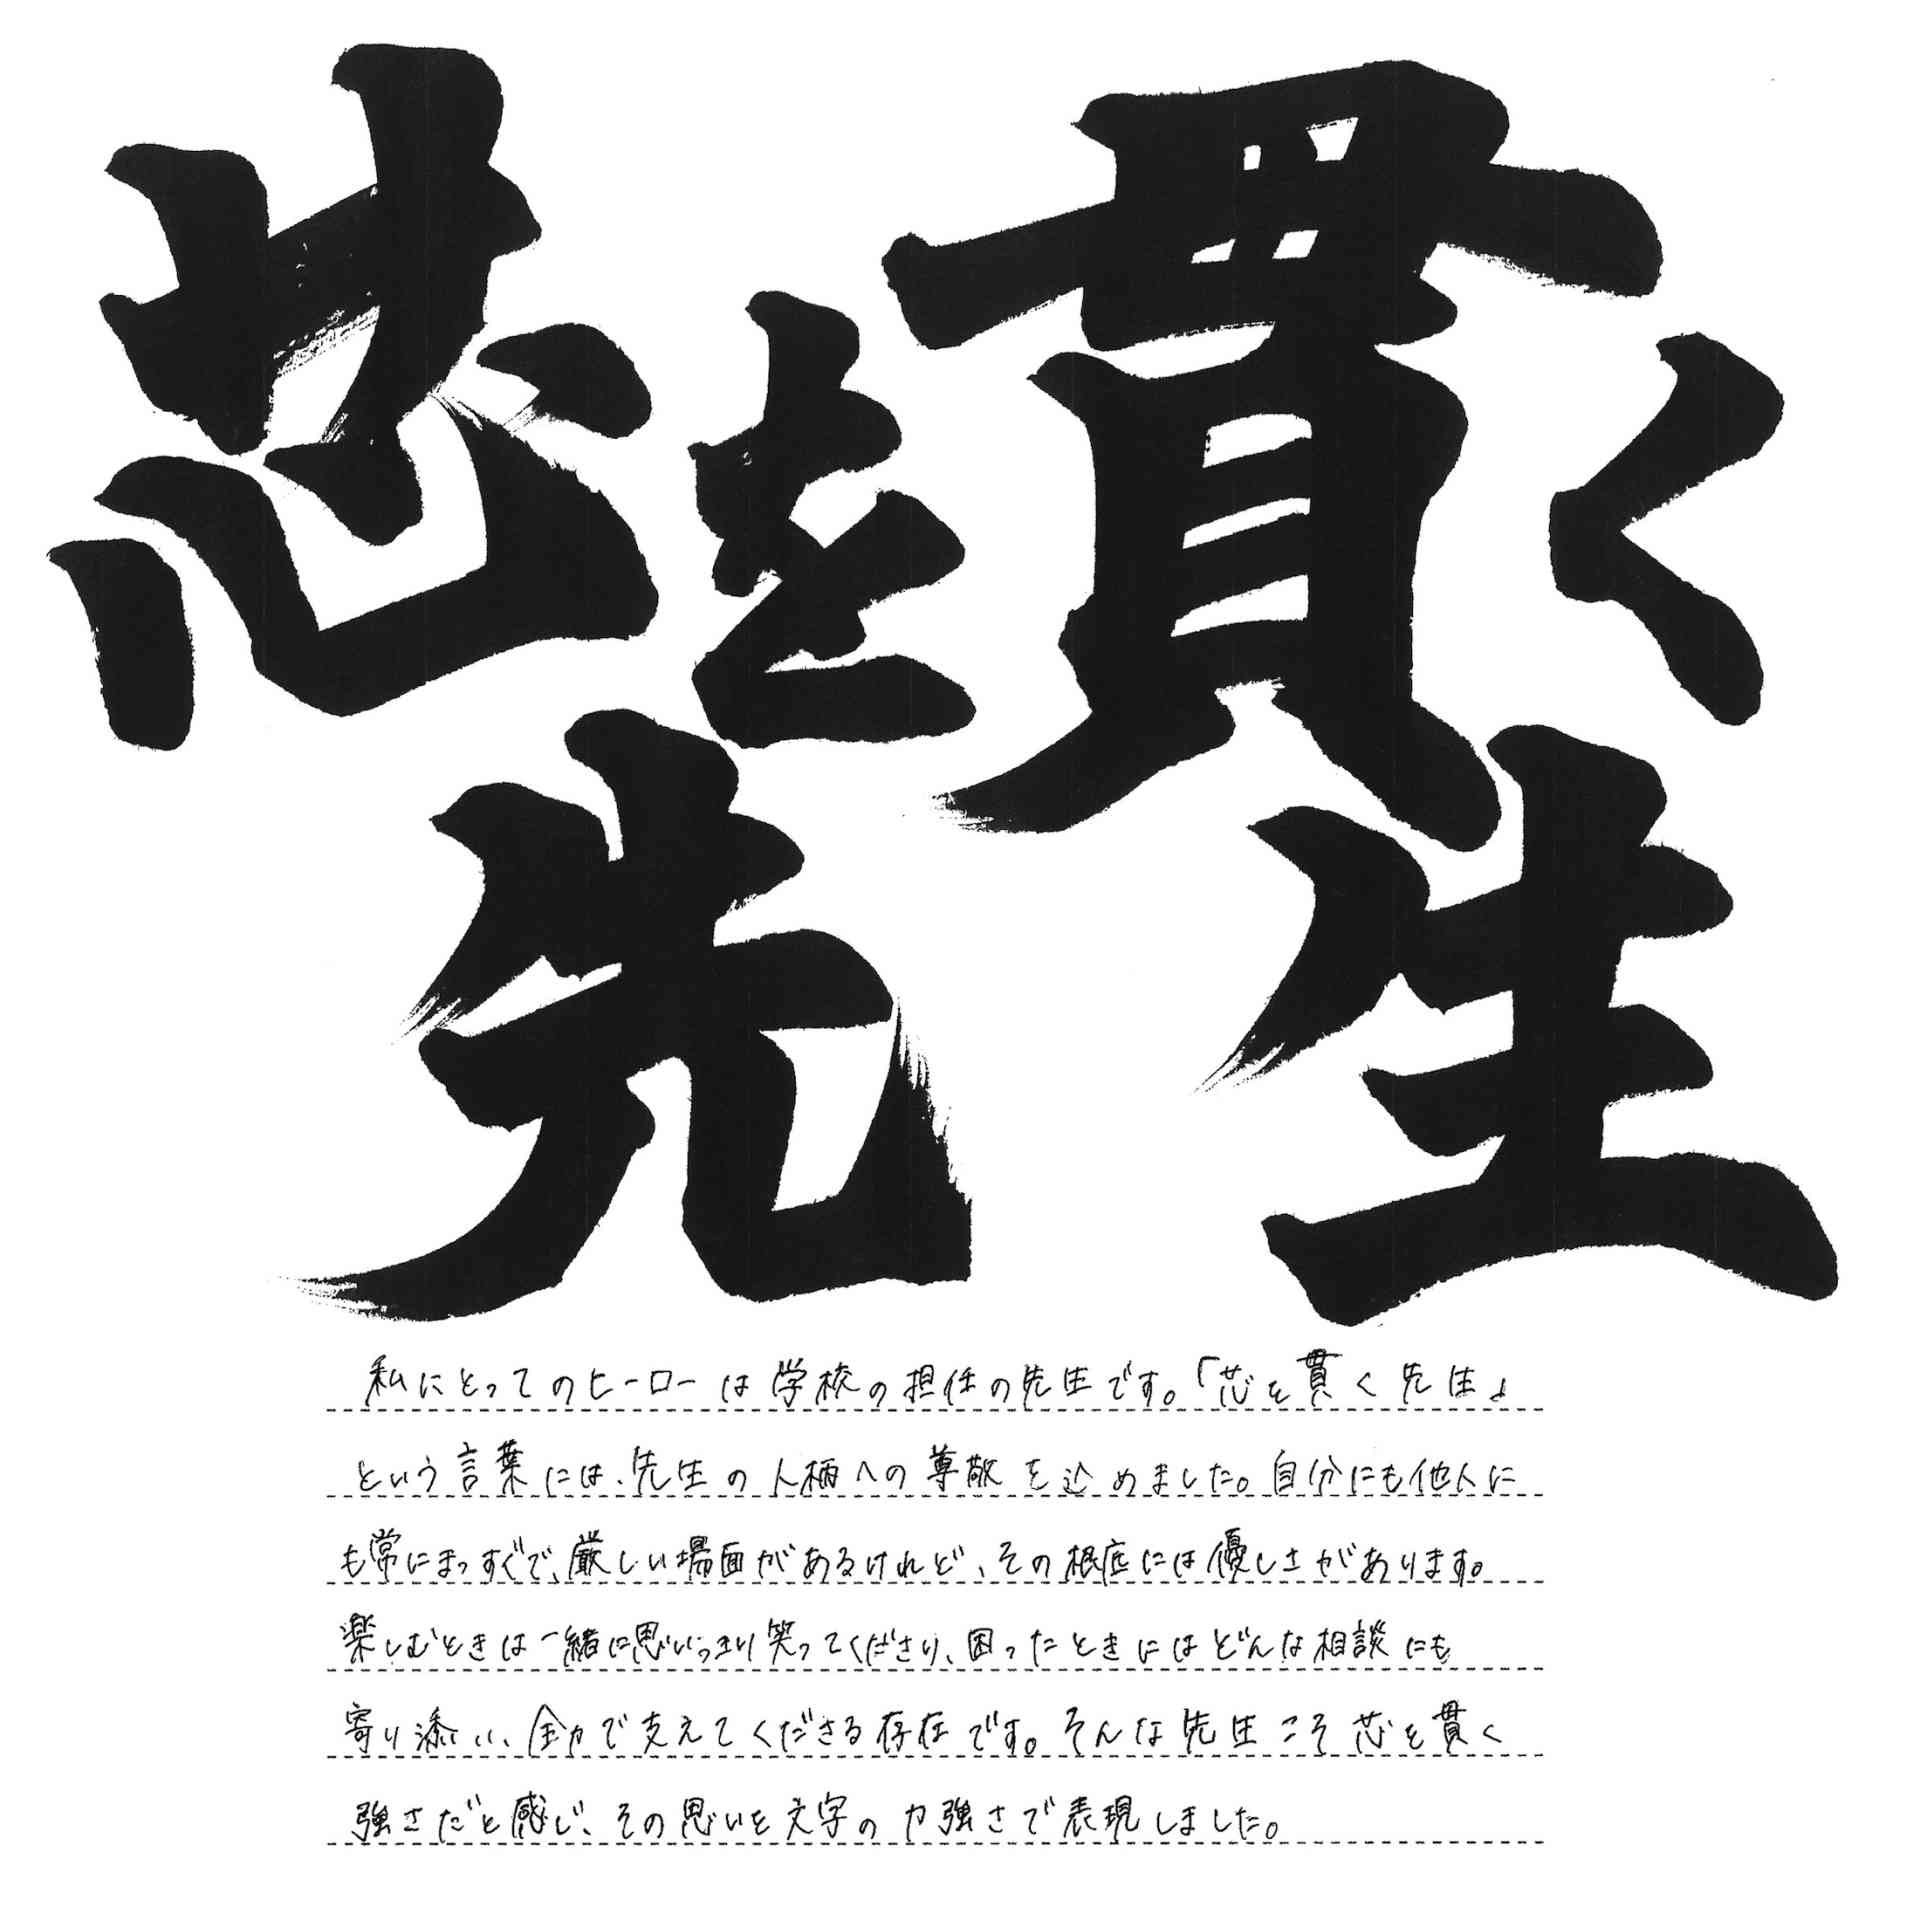 芯を貫く
先生
私にとってのヒーローは学校の担任の先生です。「芯を貫く先生」
という言葉には、先生の人柄への尊敬を込めました。自分にも他人に
も常にまっすぐで、厳しい場面があるけれど、その根底には優しさがあります。
楽しむときは一緒に思いっきり笑ってくださり、困ったときにはどんな相談にも
寄り添い、全力で支えてくださる存在です。そんな先生こそ芯を貫く
強さだと感じ、その思いを文字の力強さで表現しました。